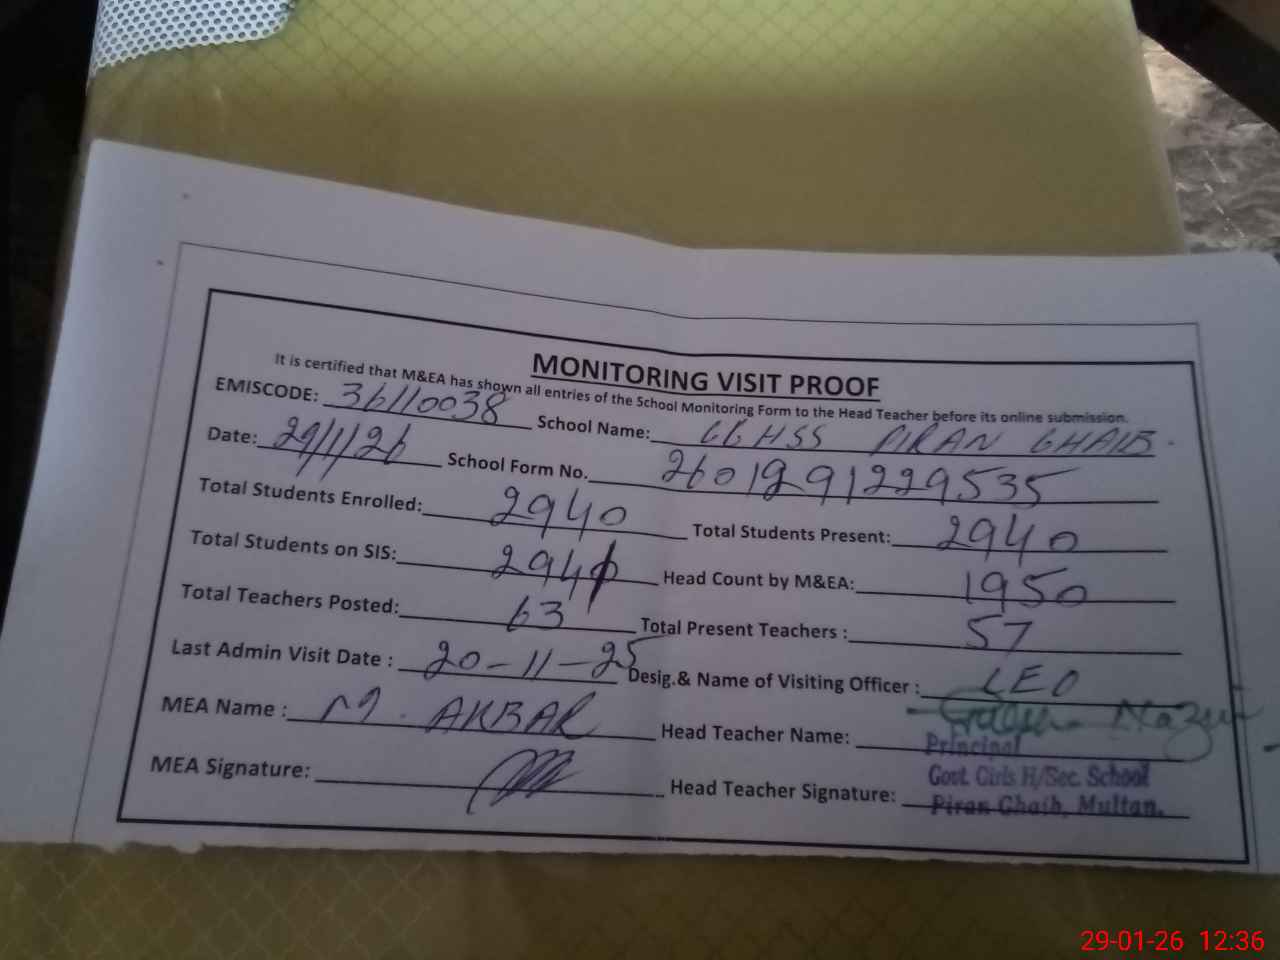 MONITORING VISIT PROOF
It is certified that M&EA has shown all entries of the School Monitoring Form to the Head Teacher before its online submission.
EMISCODE: 36110038 School Name: GGHSS PIRAN GHAIB.
Date: 29/1/26 School Form No. 2601291229535
Total Students Enrolled: 2940 Total Students Present: 2940
Total Students on SIS: 2941 Head Count by M&EA: 1950
Total Teachers Posted: 63 Total Present Teachers : 57
Last Admin Visit Date : 20-11-25 Desig.& Name of Visiting Officer : CEO
MEA Name : M. AKBAR Head Teacher Name:
Principal
MEA Signature: Head Teacher Signature:
Govt. Girls H/Sec. School
Piran Ghaib, Multan.
29-01-26 12:36